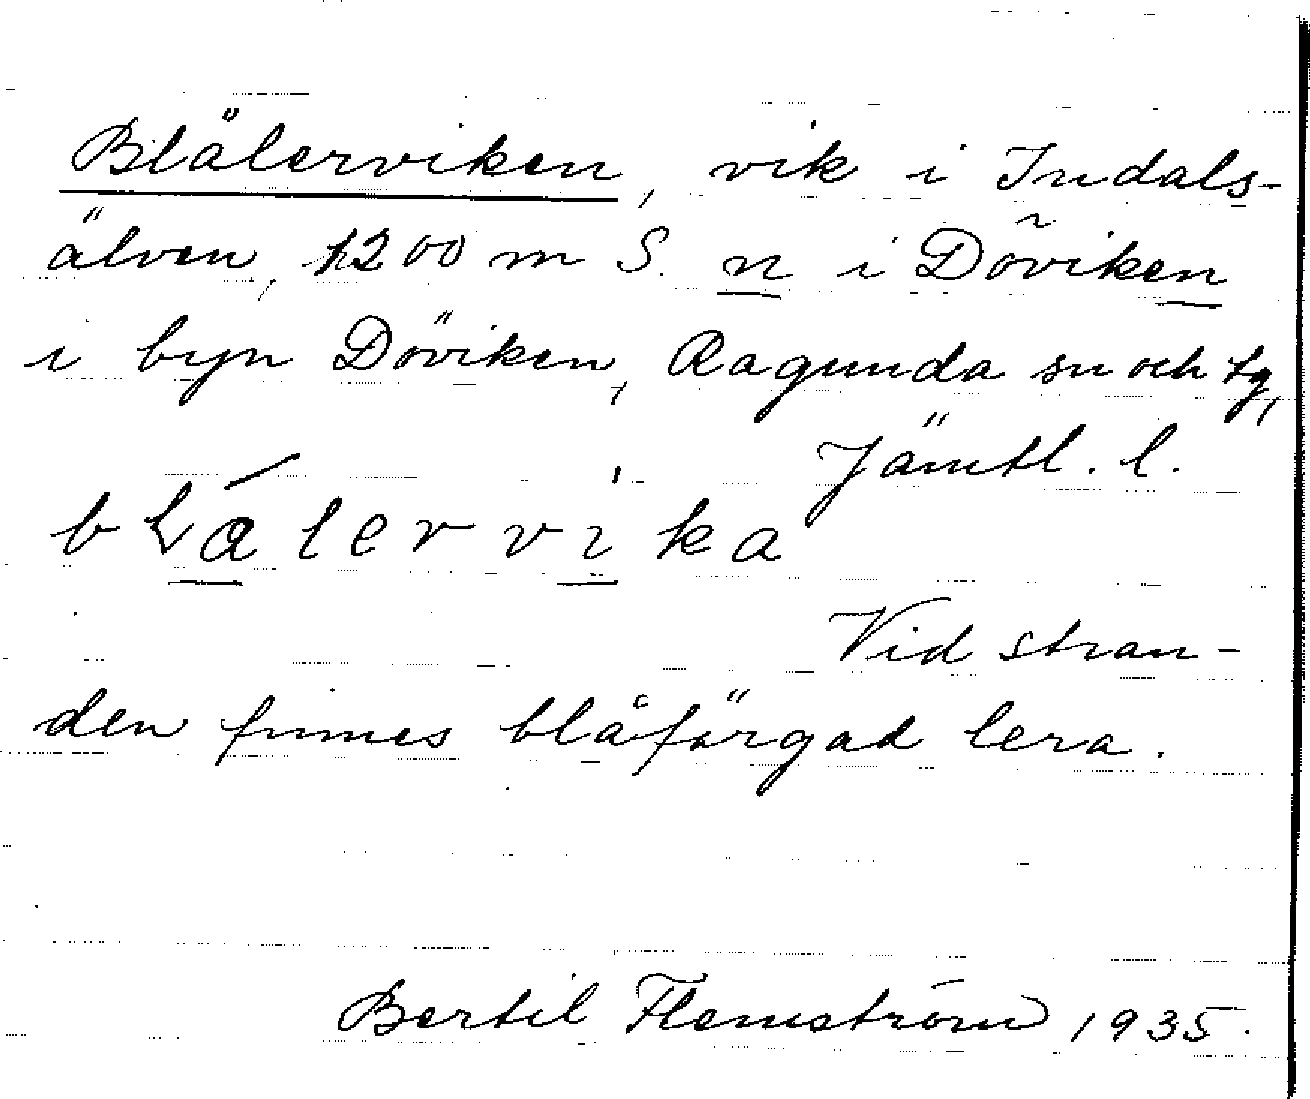 Blälerviken, vik i Indals-
älven, 1200 m S. n i Döviken
i byn Döviken, Ragunda sn och tg,
Jämtl. l.
blálervika
Vid stran-
den finnes blåförgad lera.
Bertil Flemström 1935.